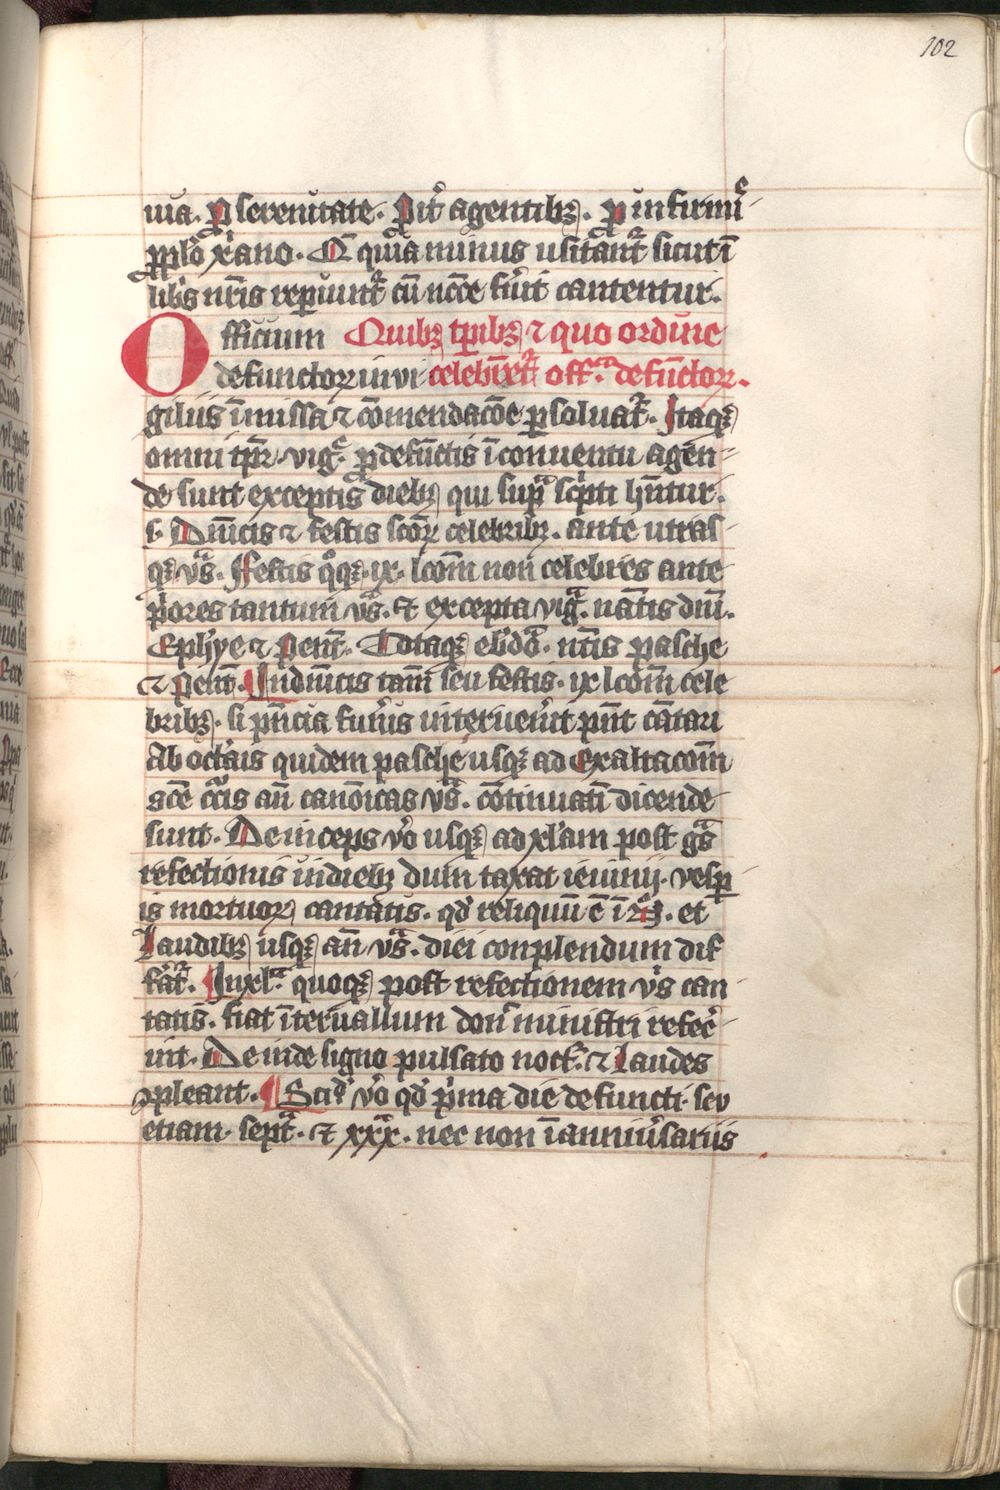 102
uia. p̱ serenitate. p̱ it̕ agentib⁊. p̱ infirmis
pplo xano. Q̅ quia minus usitant̕ sicut ī
lib̕s nr̅is repiunt̕ cū nc̅ce fu̕it cantentur.
Officium Quib⁊ tp̅ib⁊ ⁊ quo ordine
defunctoꝝ in vi celebret̕ off.ᵐ defūctoꝝ.
giliis ī missa ⁊ cōmendacōe psoluat̕. Itaq⁊
omni tp̅r vig̕. p̱ defūctis ī conventu agen
de sunt exceptis dieb⁊ qui supᵃ scpti hn̅tur.
s. Dn̅icis ⁊ festis scoꝝ celebrib⁊. ante utras
q⁊ vᵃs. Festis qͦq⁊ .ix. lcom̅ non celebres ante
p̕ores tantum vᵃs. Et excepta vigᵃ. nat̅is dn̅i.
Ephye ⁊ pent̅. Totaq⁊ ebdoᵃ. nr̅is pasche
⁊ pent̅. In dn̅icis tam̅ seu festis .ix lcom̅ cele
brib⁊. si pn̅cia fun̕is intervenit pn̅t cātari
Ab octa̕is quidem pasche usq⁊ ad Exaltacom̅
sce̅ crᵘcis an̅ canōicas vᵃs. cōtinuati̅ dicende
sunt. Deinceps v̕o usq⁊ ad xl̕am post gᵃs
refectionis in dieb⁊ dum taxat ieiunij. vesp
is mortuoꝝ cantatis. qd̕ reliquū ē
et
Laudib⁊ usq⁊ an̅ vᵃs. diei conplendum dif
fe̕at̕. In xlᵃ. quoq⁊ post refectionem v̕s can
tatis. fiat īteruallum don̕ ministri refec̕
int. Deinde signo pulsato noct̕. ⁊ Laudes
ꝯpleant. Sciᵈ v̕o qd̕ p̕ma die defuncti. seu
etiam. septᵃ. ⁊ xxxᵃ. nec non ī anniu̕sariis